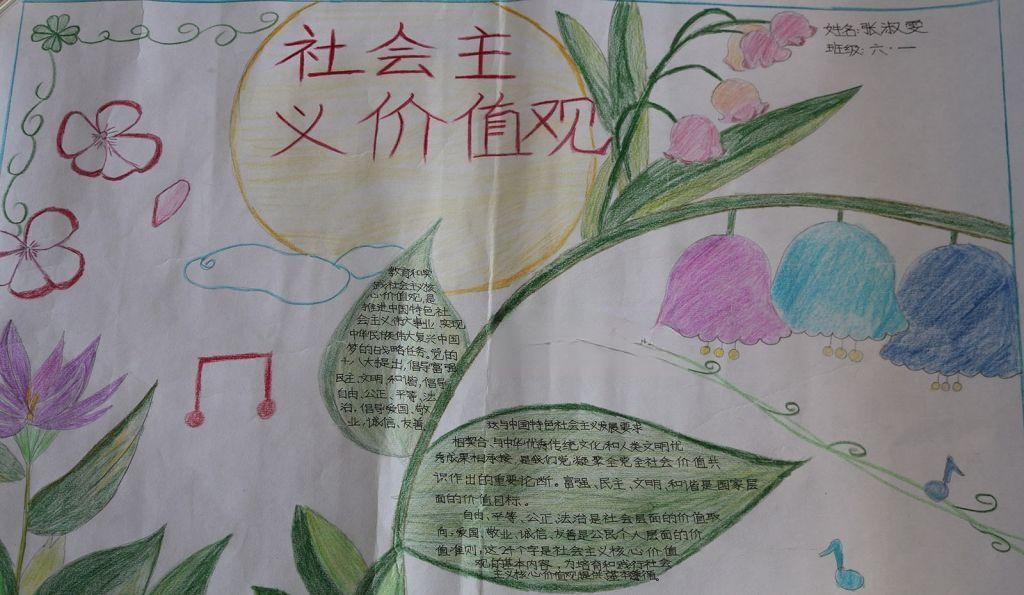 社会主
义价值观
姓名:张淑雯
班级:六·一
教育和实
践社会主义核
心价值观,是
推进中国特色社
会主义伟大事业 实现
中华民族伟大复兴中国
梦的战略任务。党的
十八大提出,倡导富强
民主、文明、和谐,倡导
自由、公正、平等、法
治,倡导爱国、敬
业、诚信、友善
与中国特色社会主义发展要求
相契合,与中华优秀传统文化和人类文明优
秀成果相承接,是我们党凝聚全党全社会价值共
识作出的重要论断。富强、民主、文明、和谐是国家层
面的价值目标。
自由、平等、公正、法治是社会层面的价值取
向,爱国、敬业、诚信、友善是公民个人层面的价
值准则,这24个字是社会主义核心价值
观的基本内容,为培育和践行社会
主义核心价值观提供基本遵循。